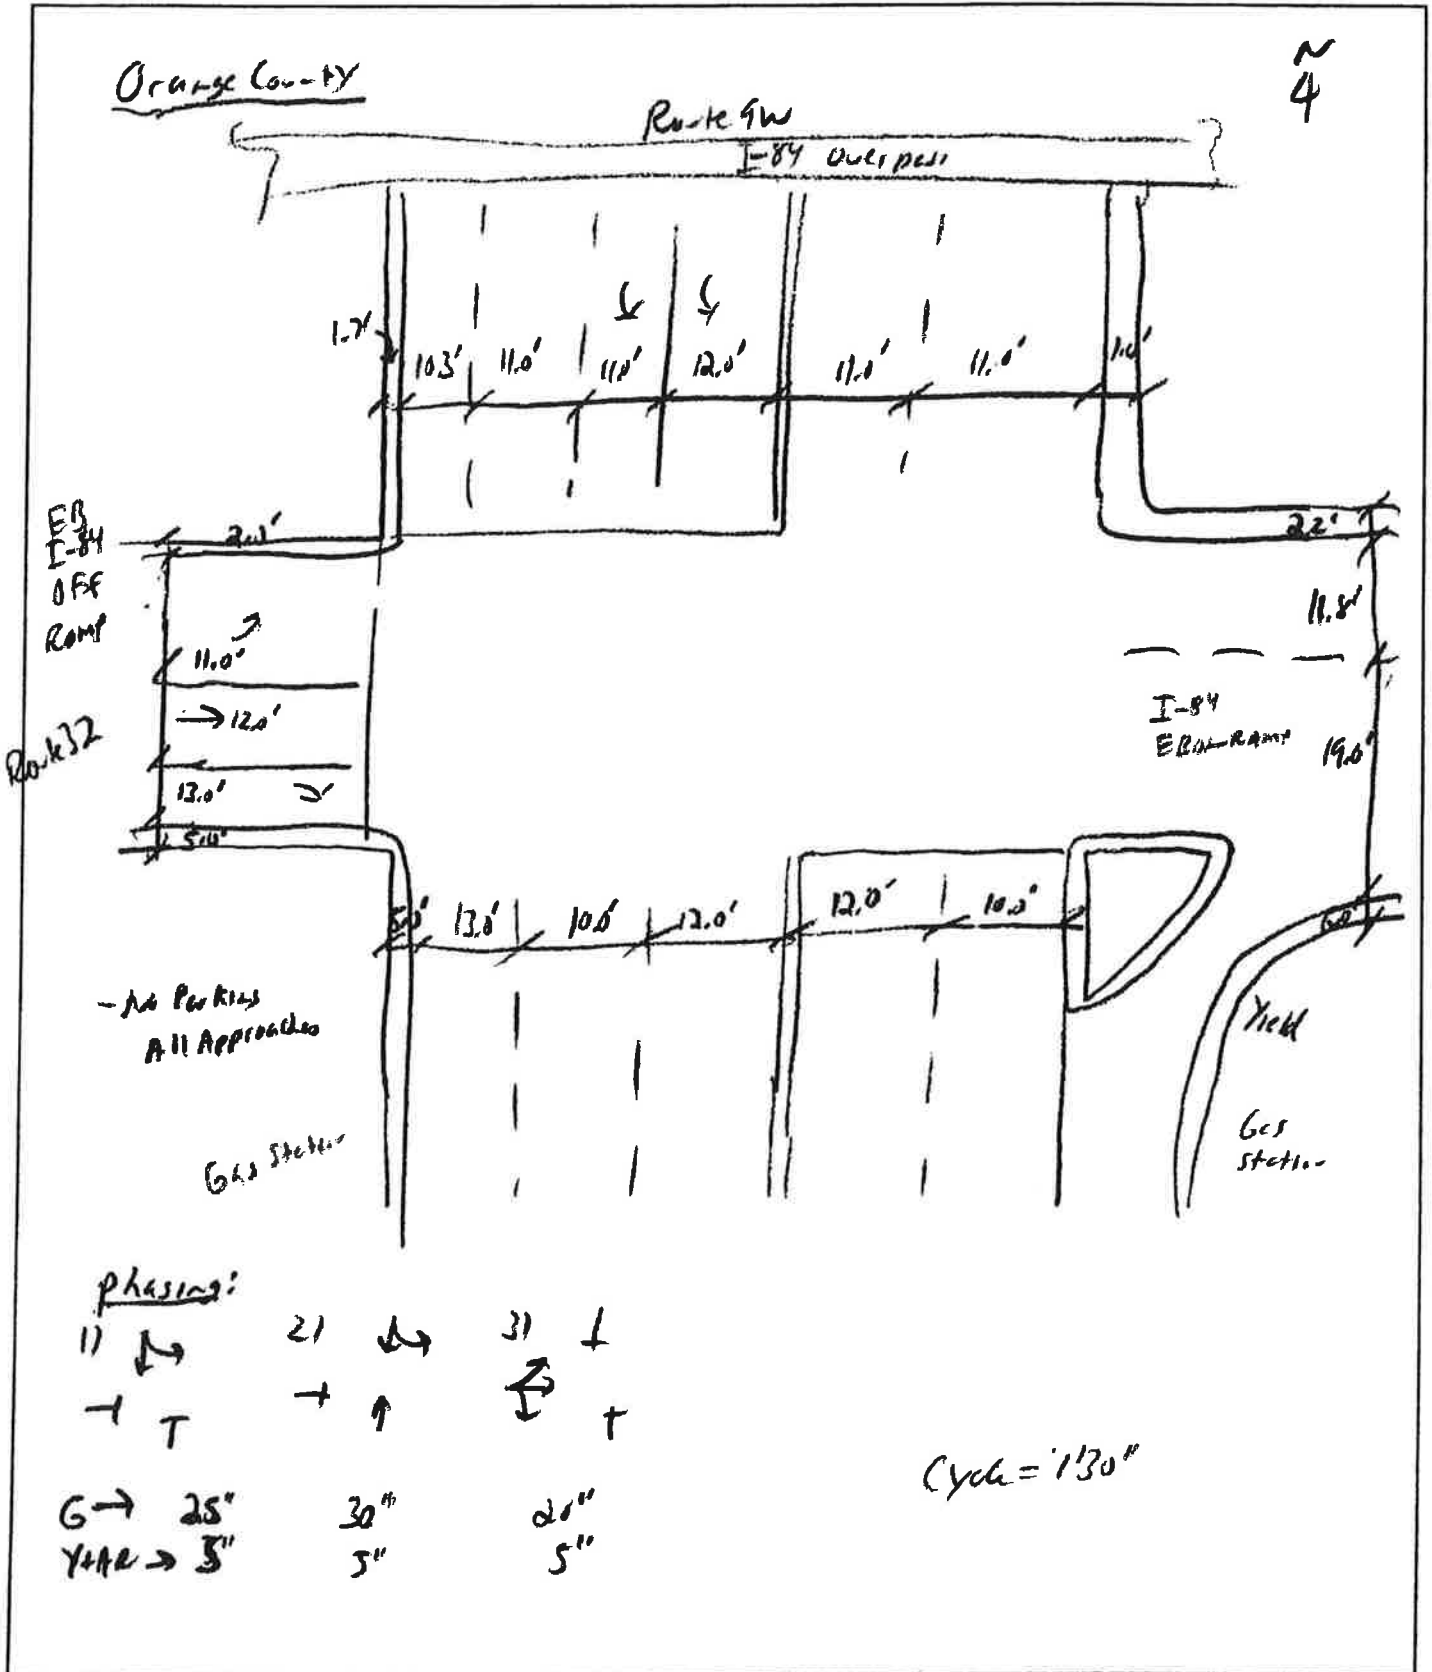 Orange County
N
Route 9W
I-84 Overpass
1.7'
10.3'
11.0'
11.0'
12.0'
11.0'
11.0'
1.0'
EB
I-84
OFF
Ramp
2.0'
2.2'
11.8'
11.0'
12.0'
Route 32
13.0'
5.0'
I-84
EB on-Ramp
19.0'
5.0'
13.0'
10.0'
12.0'
12.0'
10.0'
6.0'
- No Parking
All Approaches
Yield
Gas Station
Gas
Station
Phasing:
1)
2)
3)
G → 25" 30" 20"
Y+AR → 5" 5" 5"
Cycle = 1'30"